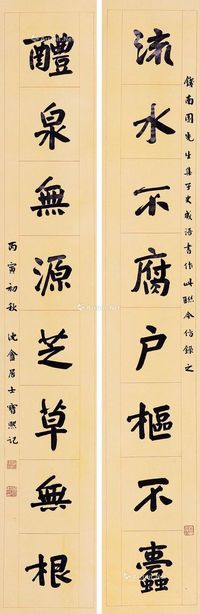 錢南園先生集子史成語書作此聯今仿錄之
流水不腐戶樞不蠹
醴泉無源芝草無根
丙寅初秋沈盦居士寶熙記